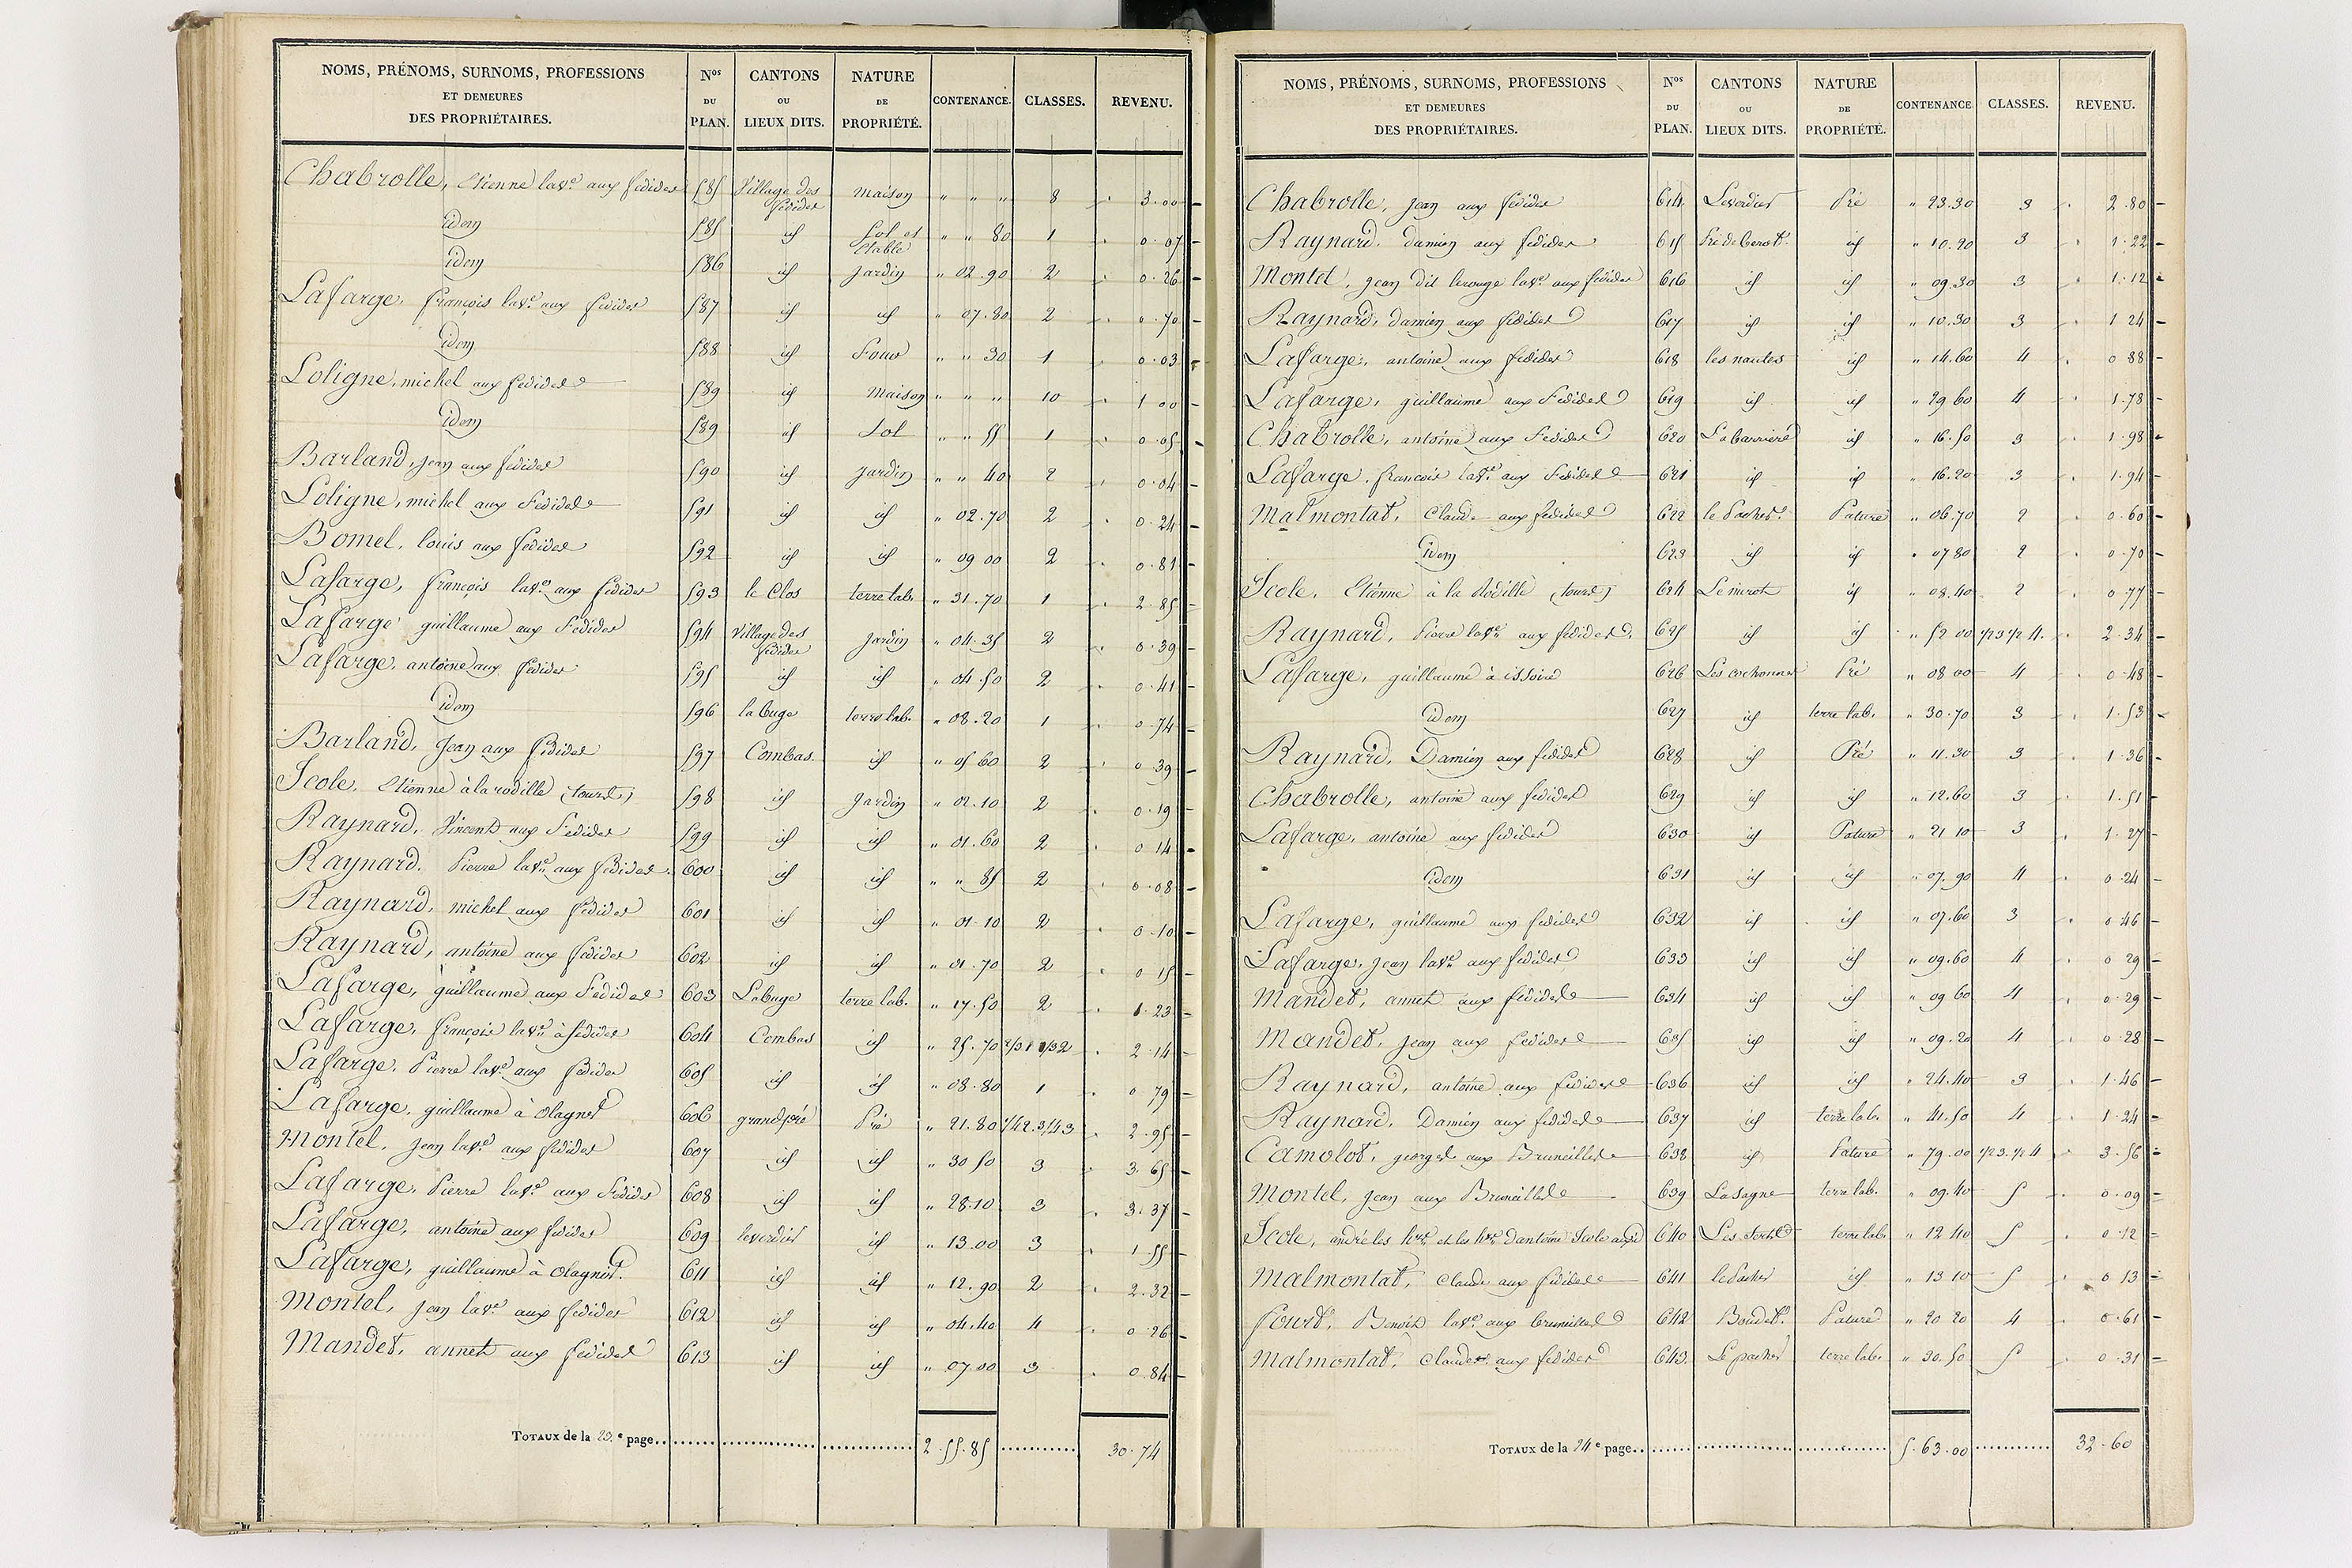 NOMS, PRÉNOMS, SURNOMS, PROFESSIONS ET DEMEURES DES PROPRIÉTAIRES. Nos DU PLAN. CANTONS OU LIEUX DITS. NATURE DE PROPRIÉTÉ. CONTENANCE. CLASSES. REVENU.
Chabrolle, Etienne lavé aux fedides 585 Village des fedides Maison " " " 8 3.00
idem 585 id Sol et Etable " " 80 1 0.07
idem 586 id Jardin " 02.90 2 0.26
Lafarge, françois lavé aux fedides 587 id id " 07.80 2 0.70
idem 588 id Four " " 30 1 0.03
Loligne, michel aux fedides 589 id Maison " " " 10 1.00
idem 589 id Sol " " 55 1 0.05
Barland, jean aux fedides 590 id Jardin " " 40 2 0.04
Loligne, michel aux Fedides 591 id id " 02.70 2 0.24
Bomel, louis aux fedides 592 id id " 09 00 2 0.81
Lafarge, françois lavé aux fedides 593 le Clos terre lab. " 31.70 1 2.85
Lafarge guillaume aux Fedides 594 Village des fedides Jardin " 04.35 2 0.39
Lafarge, antoine aux fedides 595 id id " 04.50 2 0.41
idem 596 la buge terre lab. " 08.20 1 0.74
Barland, Jean aux fedides 597 Combas. id " 05 60 2 0 39
Scole, Etienne à la rodille (tourd) 598 id Jardin " 02.10 2 0.19
Raynard, Vincent aux Fedides 599 id id " 01.60 2 0 14
Raynard, Pierre lavé aux fedides 600 id id " " 85 2 0.08
Raynard, michel aux fedides 601 id id " 01.10 2 0.10
Raynard, antoine aux fedides 602 id id " 01.70 2 0 15
Lafarge, guillaume aux Fedides 603 Labuge terre lab. " 17.50 2 1.23
Lafarge, françois lavé à fedides 604 Combas id " 25.70 2/3 1 1/3 2 2.14
Lafarge, Pierre lavé aux fedides 605 id id " 08.80 1 0 79
Lafarge, guillaume à Olagnet 606 grand pré Pré " 21.80 1/4 2.3/4 3 2.95
Montel, jean lavé aux fedides 607 id id " 30 50 3 3.65
Lafarge, Pierre lavé aux Fedides 608 id id " 28.10 3 3.37
Lafarge, antoine aux fedides 609 leverdier id " 13.00 3 1.55
Lafarge, guillaume à Olagnet. 611 id id " 12.90 2 2.32
Montel, jean lavé aux fedides 612 id id " 04.40 4 0.26
Mandet, annet aux fedides 613 id id " 07.00 3 0.84
TOTAUX de la 23.e page 2.55.85 30.74
NOMS, PRÉNOMS, SURNOMS, PROFESSIONS ET DEMEURES DES PROPRIÉTAIRES. Nos DU PLAN. CANTONS OU LIEUX DITS. NATURE DE PROPRIÉTÉ. CONTENANCE. CLASSES. REVENU.
Chabrolle, jean aux fedides 614 Leverdier Pré " 23.30 3 2.80
Raynard, damien aux fedides 615 id " 10.20 3 1.22
Montel, jean dit lerouge lavé aux fedides 616 id id " 09.30 3 1.12
Raynard, damien aux fedides 617 id id " 10.30 3 1 24
Lafarge, antoine aux fedides 618 les nautes id " 14.60 4 0 88
Lafarge, guillaume aux Fedides 619 id id " 29 60 4 1.78
Chabrolle, antoine aux Fedides 620 Labarriere id " 16.50 3 1.98
Lafarge, francois lavé aux Fedides 621 id id " 16.20 3 1.94
Malmontat, Claude aux fedides 622 le Pacher Pature " 06.70 2 0.60
idem 623 id id " 07 80 2 0.70
Scole, Etienne à la Rodille (tourd) 624 id " 08.40 2 0 77
Raynard, Pierre lavé aux fedides 625 id id " 52 00 1/2 3 1/2 4. 2.34
Lafarge, guillaume à issoire 626 Les cochonnes Pré " 08 00 4 0.48
idem 627 id terre lab. " 30.70 3 1.53
Raynard, Damien aux fedides 628 id Pré " 11.30 3 1.36
Chabrolle, antoine aux fedides 629 id id " 12.60 3 1.51
Lafarge, antoine aux fedides 630 id Pature " 21 10 3 1.27
idem 631 id id " 07.90 4 0.24
Lafarge, guillaume aux fedides 632 id id " 07.60 3 0.46
Lafarge, jean lavé aux fedides 633 id id " 09.60 4 0 29
Mandet, annet aux fedides 634 id id " 09 60 4 0.29
Mandet, jean aux fedides 635 id id " 09.20 4 0.28
Raynard, antoine aux fedides 636 id id " 24.40 3 1.46
Raynard, Damien aux fedides 637 id terre lab. " 41.50 4 1.24
Camolot, georges aux Bruneilles 638 id Pature " 79.00 1/2 3.1/2 4 3.56
Montel, jean aux Bruneilles 639 Lasagne terre lab. " 09.40 5 0.09
Scole, andré les hers et les hers d'antoine Scole 640 terre lab. " 12 40 5 0.12
Malmontat, claude aux fedides 641 le Pacher id " 13 10 5 0 13
Benoit lavé aux bruneilles 642 Pature " 20 20 4 0.61
Malmontat, claude aux fedides 643 Le pacher terre lab. " 30.50 5 0.31
TOTAUX de la 24e page 5.63.00 32.60